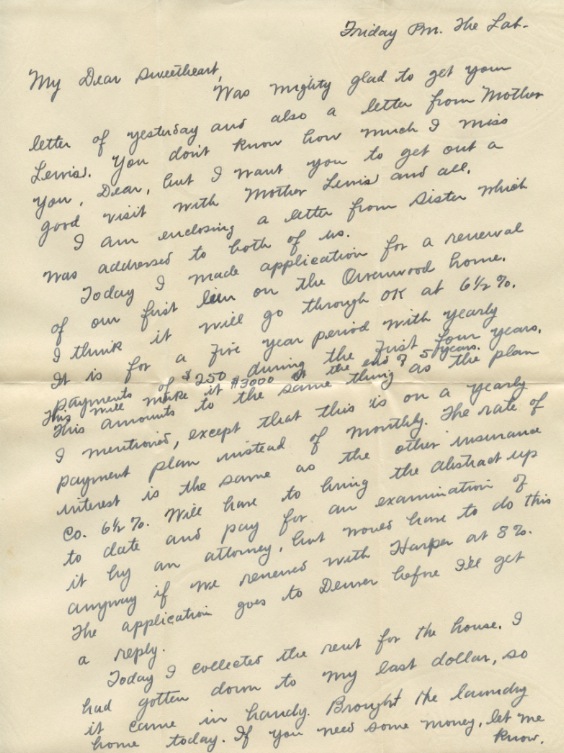 Friday Pm. The Lab.
My Dear Sweetheart,
Was mighty glad to get your
letter of yesterday and also a letter from Mother
Lewis. You don't know how much I miss
you, Dear, but I want you to get out a
good visit with Mother Lewis and all.
I am enclosing a letter from Sister which
was addressed to both of us.
Today I made application for a renewal
of our first lien on the home.
I think it will go through OK at 6½%.
It is for a five year period with yearly
payments of $250 during the first four years.
This will make it $3000 at the end of 5 years.
This amounts to the same thing as the plan
I mentioned, except that this is on a yearly
payment plan instead of monthly. The rate of
interest is the same as the other insurance
Co. 6½%. Will have to bring the abstract up
to date and pay for an examination of
it by an attorney, but would have to do this
anyway if we renewed with Harper at 8%.
The application goes to Denver before I'll get
a reply.
Today I collected the rent for the house. I
had gotten down to my last dollar, so
it came in handy. Brought the laundry
home today. If you need some money, let me
know.